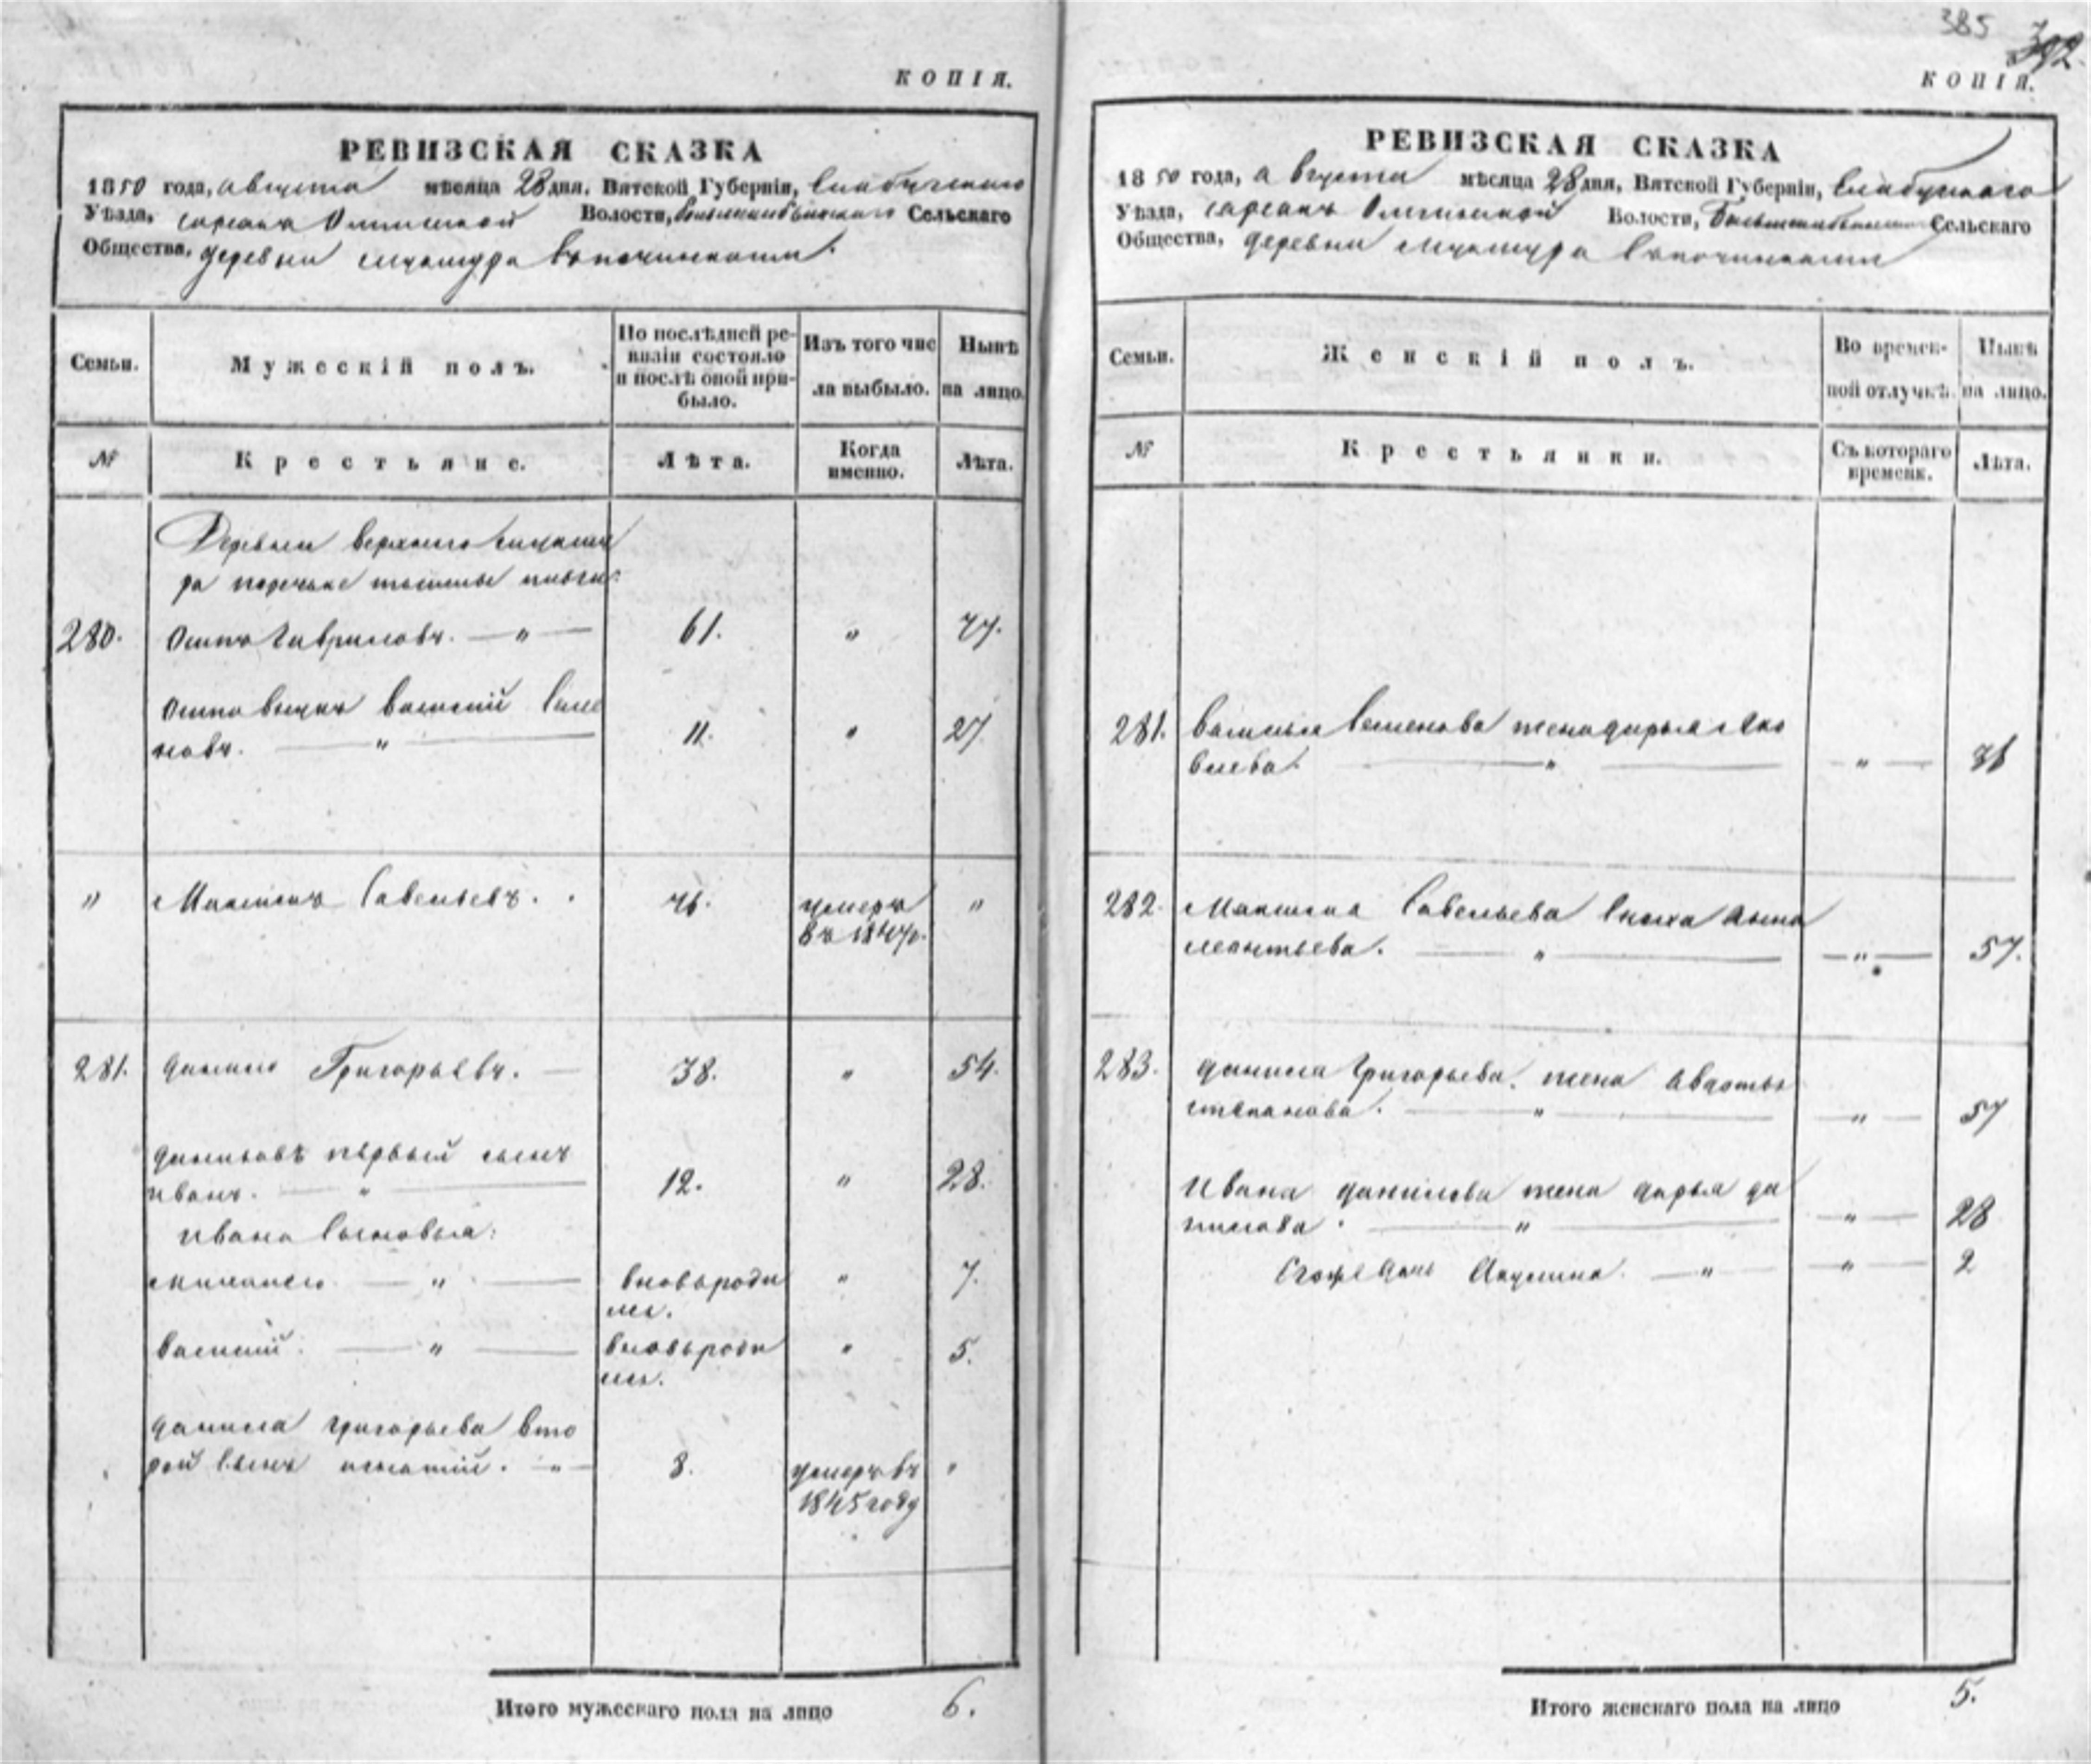 КОПІЯ.
РЕВИЗСКАЯ СКАЗКА
1850 года, августа мѣсяца 28 дня, Вятской Губерніи, Елабужскаго
Уѣзда, Волости, Сельскаго
Общества, деревни
Семьи.
Мужескій полъ.
По послѣдней ре-
визіи состояло
и послѣ оной при-
было.
Изъ того чис
ла выбыло.
Нынѣ
на лицо.
№
Крестьяне.
Лѣта.
Когда
именно.
Лѣта.
Деревни верхнего
ра поречьке
280. Осипъ Гавриловъ. — „ — 61. „ 77.
Осипа внукъ василий Семе
новъ. — „ — 11. „ 27
„ Максимъ Савельевъ. 46. умеръ „
въ 1847г.
281. данило Григорьевъ. — 38. „ 54.
даниловъ первый сынъ
иванъ. — „ — 12. „ 28.
ивана Сыновья:
михайло — „ — вновьроди „ 7.
лсь.
василий. — „ — вновьроди „ 5.
лсь.
данила григорьева вто
рой Сынъ игнатий. — „ — 8. умеръ въ „
1845 году
Итого мужескаго пола на лицо 6.
385 392.
КОПІЯ.
РЕВИЗСКАЯ СКАЗКА
1850 года, августа мѣсяца 28 дня, Вятской Губерніи, Елабужскаго
Уѣзда, Волости, Сельскаго
Общества, деревни
Семьи.
Женскій полъ.
Во времен-
ной отлучкѣ.
Нынѣ
на лицо.
№
Крестьянки.
Съ котораго
времени.
Лѣта.
281. василья Семенова жена дарья Яко
влева. — „ — — „ —
282. Максима Савельева Сноха Анна
леонтьева. — „ — — „ — 57.
283. данила григорьева. жена авдотья
степанова. — „ — — „ — 57
ивана данилова жена дарья да
нилова. — „ — — „ — 28
Егоже дочь Акулина. — „ — — „ — 2
Итого женскаго пола на лицо 5.